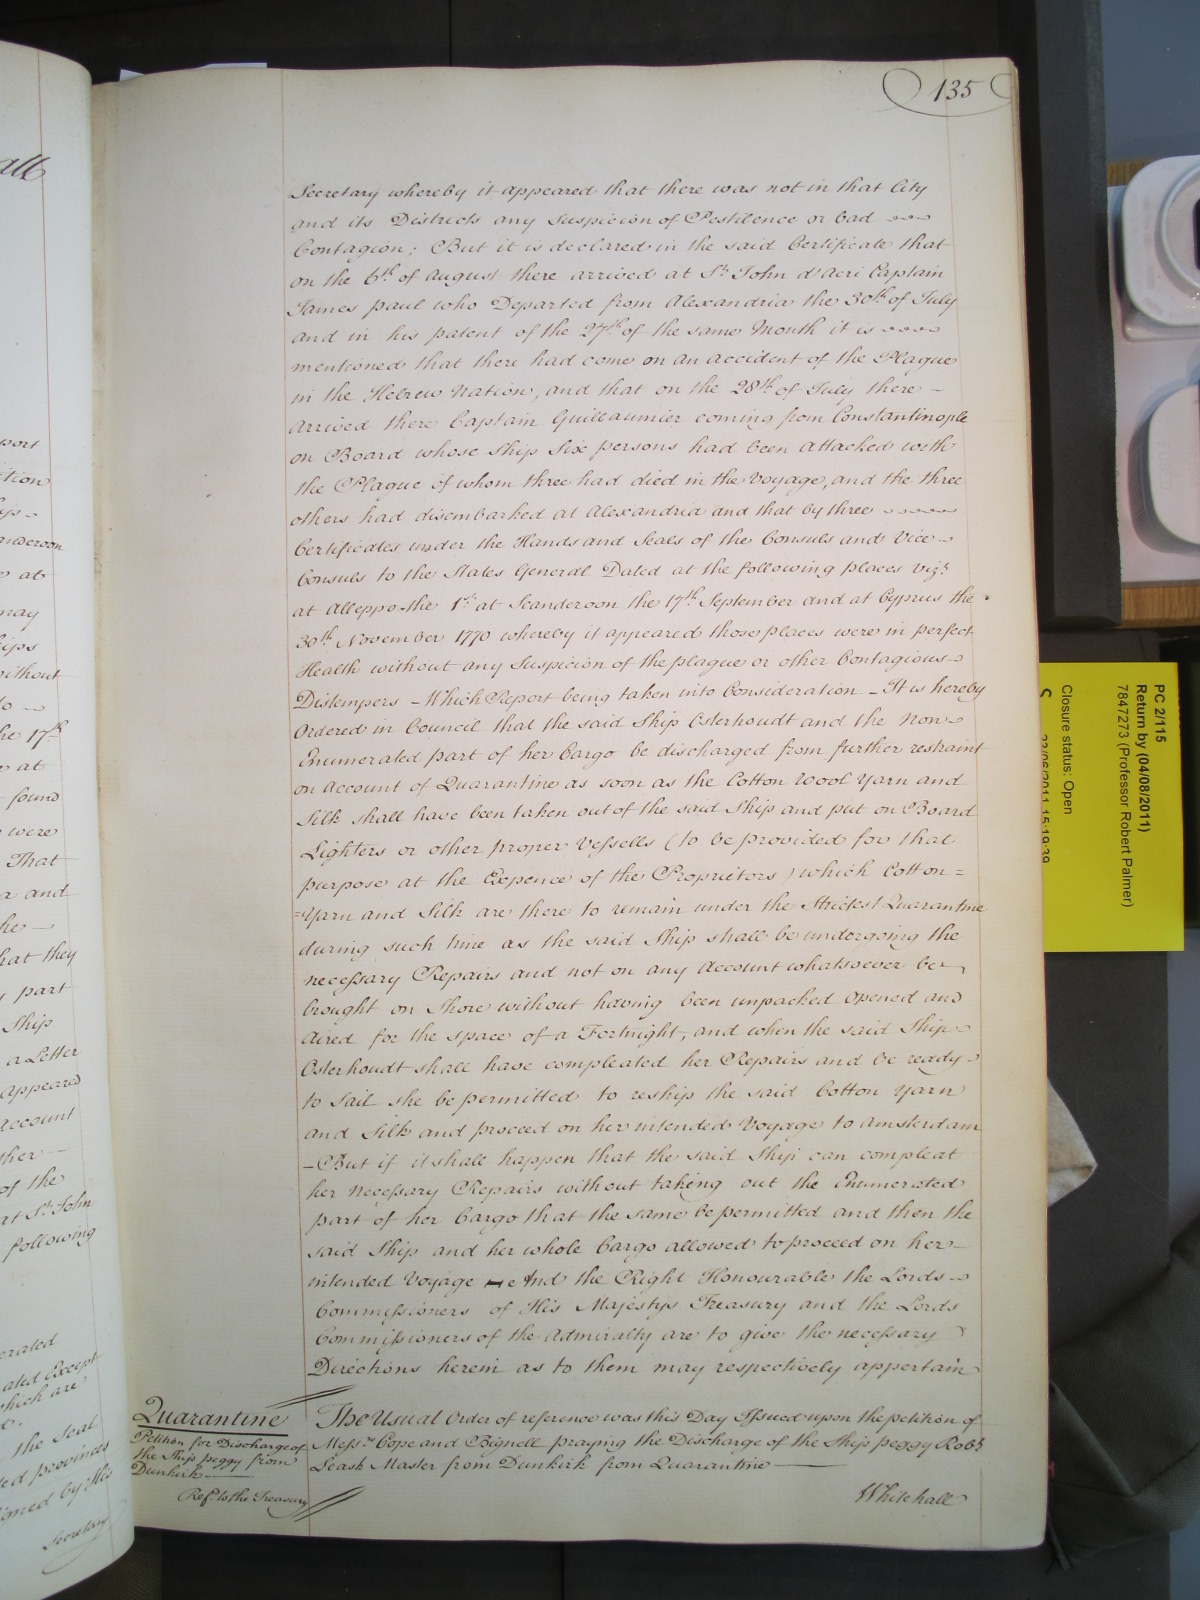 135
Secretary whereby it appeared that there was not in that City
and its Districts any Suspicion of Pestilence or bad
Contagion; But it is declared in the said Certificate that
on the 6th of August there arrived at St. John d'Acri Captain
James Paul who Departed from Alexandria the 30th of July
and in his patent of the 27th of the same Month it is
mentioned that there had come on an accident of the Plague
in the Hebrew Nation, and that on the 28th of July there -
Arrived there Captain Guilleaumier coming from Constantinople
on Board whose Ship Six persons had been Attacked with
the Plague of whom three had died in the Voyage, and the three
others had disembarked at Alexandria and that by three
Certificates under the Hands and Seals of the Consuls and Vice-
Consuls to the States General Dated at the following places vizt.
at Alleppo the 1st. at Scanderoon the 17th. September and at Cyprus the
30th. November 1770 whereby it appeared those places were in perfect
Health without any Suspicion of the plague or other Contagious
Distempers - Which Report being taken into Consideration - It is hereby
Ordered in Council that the said Ship Osterhoudt and the Non-
Enumerated part of her Cargo be discharged from further restraint
on Account of Quarantine as soon as the Cotton Wool Yarn and
Silk shall have been taken out of the said Ship and put on Board
Lighters or other proper Vessells (to be provided for that
purpose at the Expence of the Proprietors) which Cotton=
=Yarn and Silk are there to remain under the Strictest Quarantine
during such time as the said Ship shall be undergoing the
necessary Repairs and not on any Account whatsoever be
brought on Shore without having been unpacked opened and
Aired for the space of a Fortnight, and when the said Ship
Osterhoudt shall have compleated her Repairs and be ready
to Sail she be permitted to reship the said Cotton Yarn
and Silk and proceed on her intended Voyage to Amsterdam
- But if it shall happen that the said Ship can compleat
her necessary Repairs without taking out the Enumerated
part of her Cargo that the same be permitted and then the
said Ship and her whole Cargo allowed to proceed on her
intended Voyage And the Right Honourable the Lords
Commissioners of His Majestys Treasury and the Lords
Commissioners of the Admiralty are to give the necessary
Directions herein as to them may respectively appertain
Quarantine
Petition for Discharge of
the Ship Peggy from
Dunkirk
Refd. to the Treasury
The Usual Order of reference was this Day Issued upon the petition of
Messrs. Cope and Bignell praying the Discharge of the Ship Peggy Robt.
Leask Master from Dunkirk from Quarantine
Whitehall
port
ction
anderoon
at
may
ships
without
to
he 17th
at
found
were
That
a and
he
hat they
part
Ship
a Letter
Appeared
Account
ther
of the
at St. John
following
erated
ated Except
which are
the Seal
ed provinces
igned by His
Secretary
PC 2/115
Return by (04/08/2011)
7847273 (Professor Robert Palmer)
Closure status: Open
23/06/2011 15:19:39